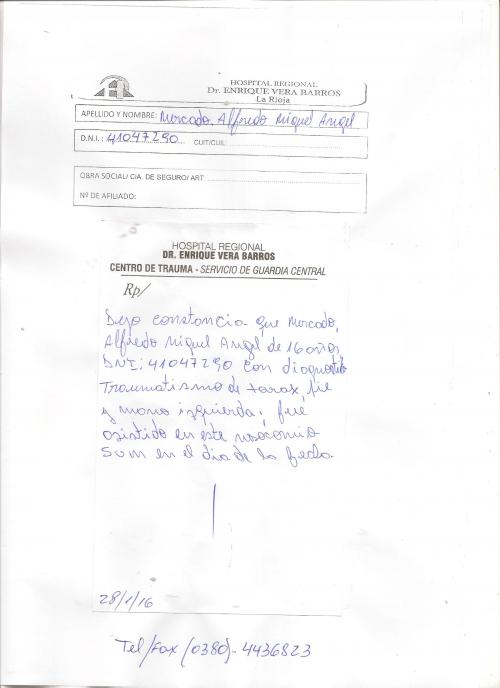 HOSPITAL REGIONAL
Dr. ENRIQUE VERA BARROS
La Rioja
APELLIDO Y NOMBRE: Mercado, Alfredo Miguel Angel
D.N.I.: 41047290 CUIT/CUIL:
OBRA SOCIAL/ CIA. DE SEGURO/ ART:
Nº DE AFILIADO:
HOSPITAL REGIONAL
DR. ENRIQUE VERA BARROS
CENTRO DE TRAUMA - SERVICIO DE GUARDIA CENTRAL
Rp/
Dejo constancia que Mercado,
Alfredo Miguel Angel de 16 años
DNI: 41047290 con diagnostico
Traumatismo de torax, pie
y mano izquierda, fué
asistido en este nosocomio
en el dia de la fecha.
28/1/16
Tel/Fax (0380)-4436823